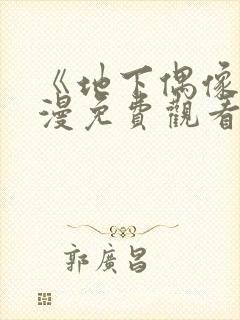 《地下偶像
漫免費觀看
郭廣昌